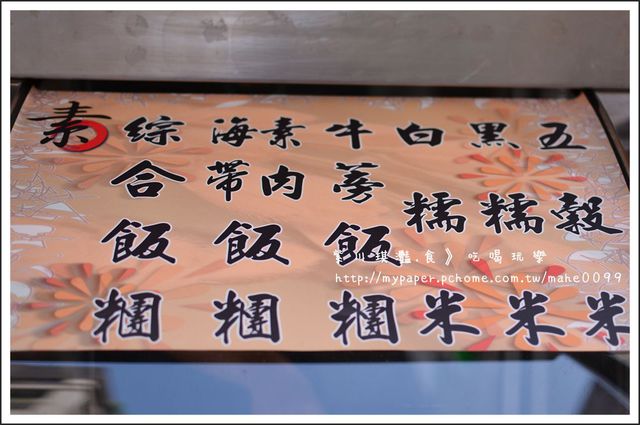 素
綜合飯糰
海帶素肉飯糰
牛蒡飯糰
白糯米
黑糯米
五穀米
吃喝玩樂
http://mypaper.pchome.com.tw/mahe0099